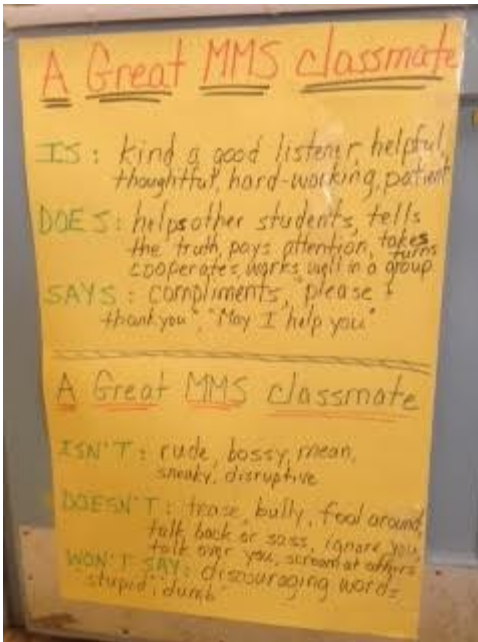 A Great MMS classmate
IS: kind a good listener, helpful,
thoughtful, hard-working, patient
DOES: helps other students, tells
the truth, pays attention, takes turns
cooperates, works well in a group
SAYS: compliments, "please &
thank you", "May I help you"
A Great MMS classmate
ISN'T: rude, bossy, mean,
sneaky, disruptive
DOESN'T: tease, bully, fool around,
talk back or sass, ignore you,
talk over you, scream at others
WON'T SAY: discouraging words
"stupid", "dumb"